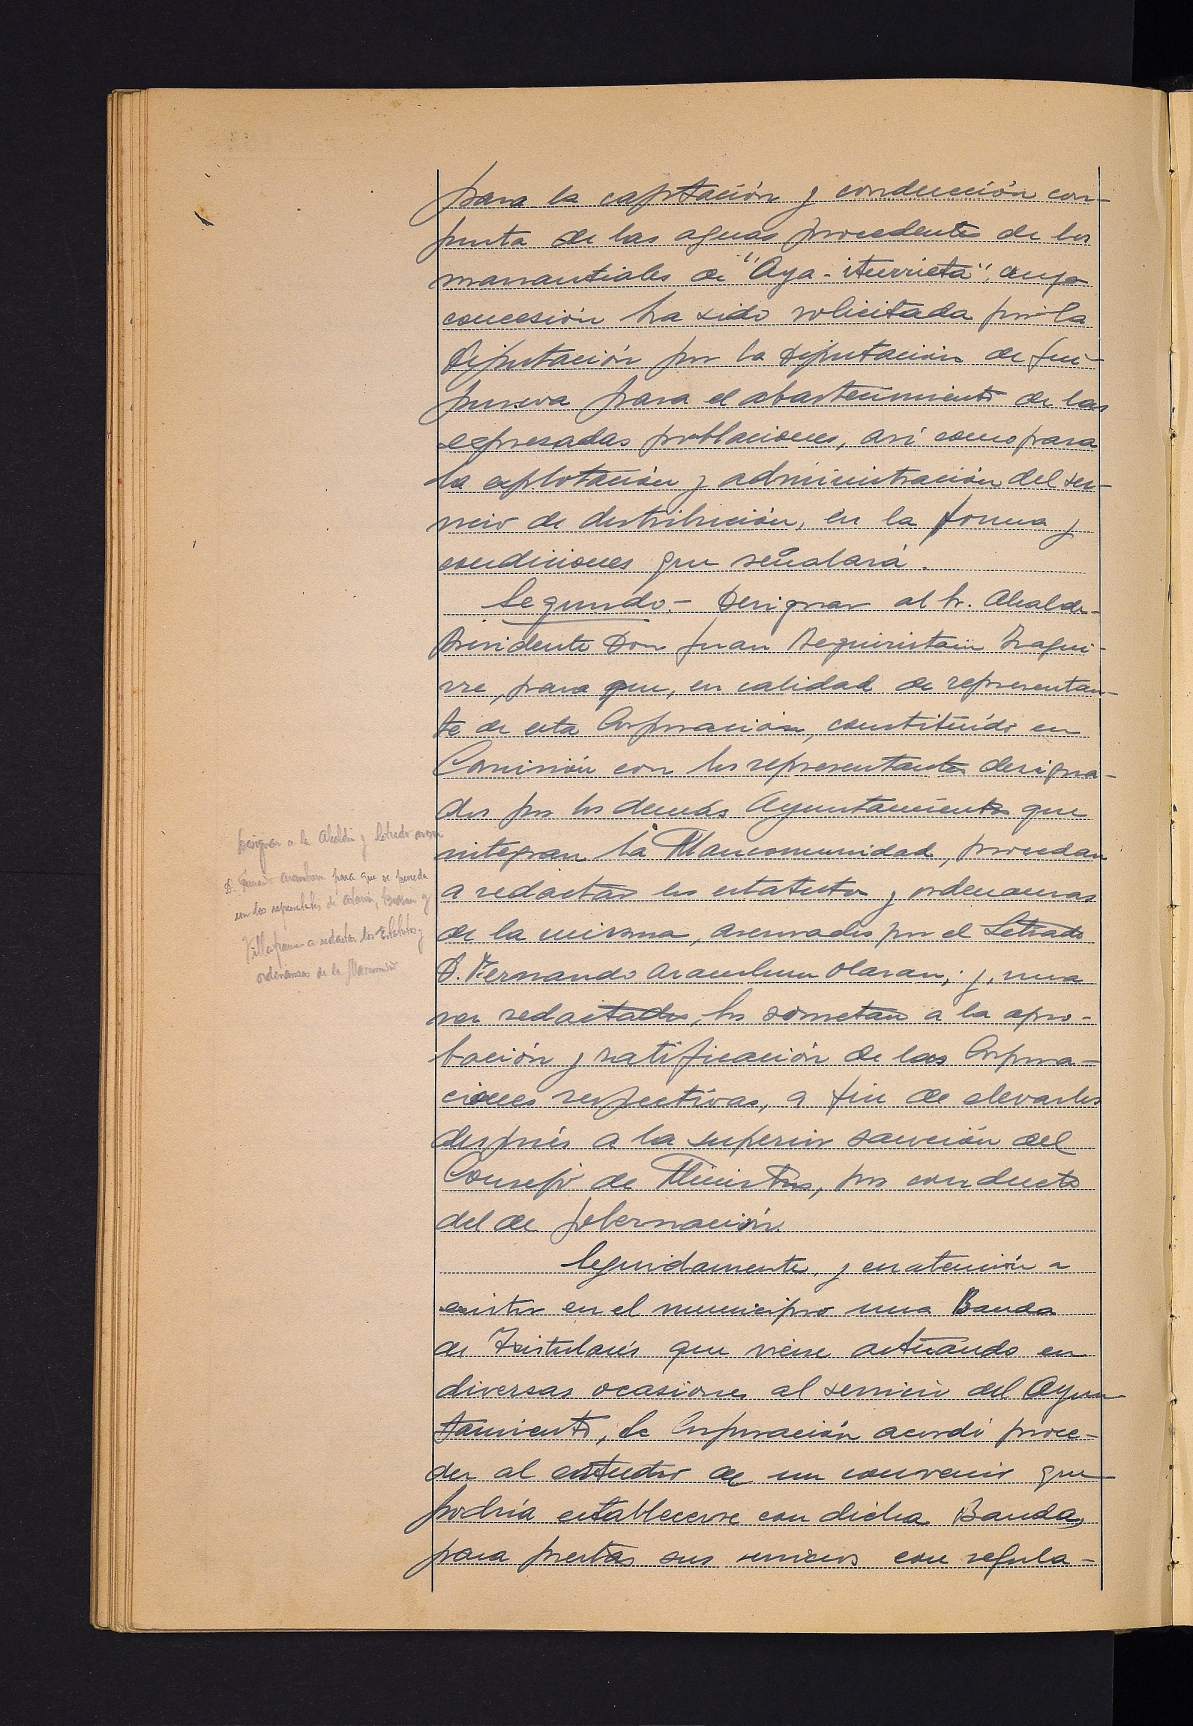 para la captación y conducción con-
junta de las aguas procedentes de los
manantiales de "Aya-iturrieta", cuya
concesión ha sido solicitada por la
Diputación por la Diputación de Gui-
púzcoa para el abastecimiento de las
expresadas poblaciones, así como para
la explotación y administración del ser-
vicio de distribución, en la forma y
condiciones que señalará.
Segundo - Designar al Sr. Alcalde-
Presidente Don Juan Beguiristain
rre, para que, en calidad de representan-
te de esta Corporación, constituído en
Comisión con los representantes designa-
dos por los demás Ayuntamientos que
integran la Mancomunidad, procedan
a redactar los estatutos y ordenanzas
de la misma, asesorados por el Letrado
D. Fernando Aramburu Olaran; y, una
vez redactados, los sometan a la apro-
bación y ratificación de las Corpora-
ciones respectivas, a fin de elevarlos
después a la superior sanción del
Consejo de Ministros, por conducto
del de Gobernación
Seguidamente, y en atención a
existir en el municipio una Banda
de Txistularis que viene actuando en
diversas ocasiones al servicio del Ayun-
tamiento, la Corporación acordó proce-
der al estudio de un convenio que
podría establecerse con dicha Banda,
para prestar sus servicios con regula-
Designar a la Alcaldía y letrado
D. Fernando Aramburu para que se proceda
con los representantes de Beasain y
Villafranca a redactar los Estatutos y
ordenanzas de la